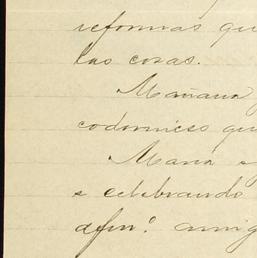 reformas qu
las cosas.
Mañana
codornices qu
Maria y
e celebrando
afmº. amig